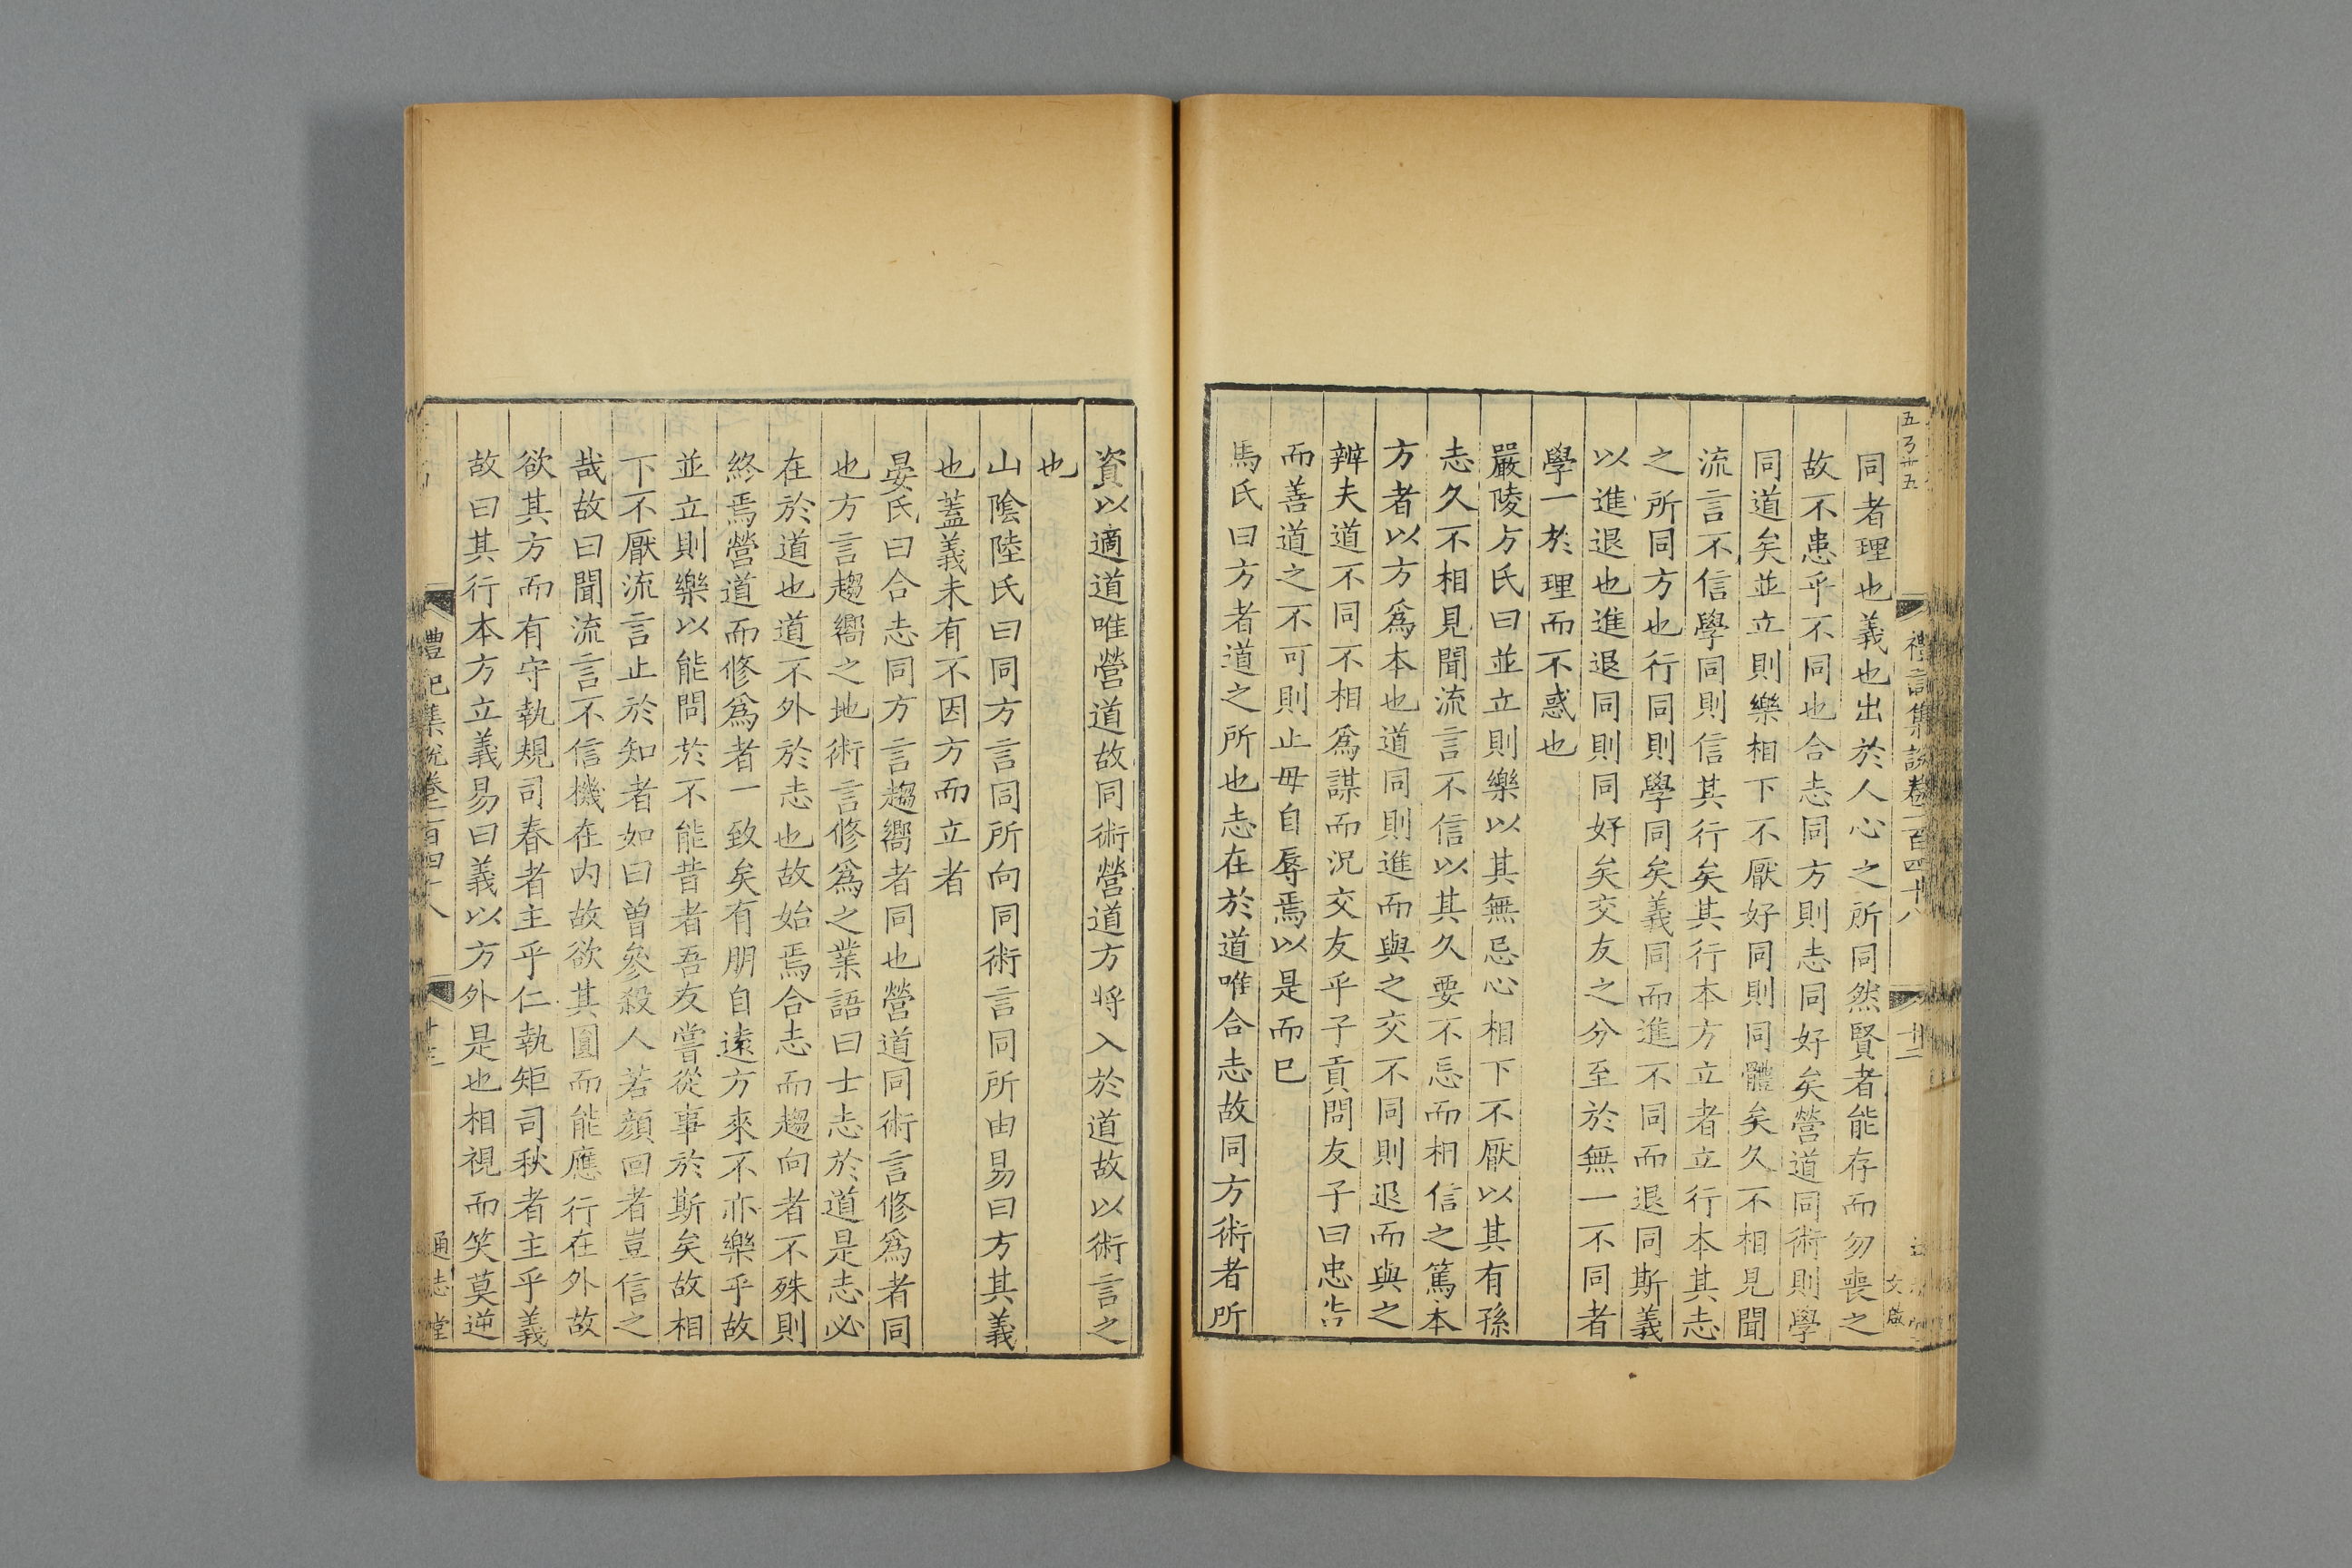 禮記集說卷一百四十八
十二
同者理也義也出於人心之所同然賢者能存而勿喪之
故不患乎不同也合志同方則志同好矣營道同術則學
同道矣並立則樂相下不厭好同則同體矣久不相見聞
流言不信學同則信其行矣其行本方立者立行本其志
之所同方也行同則學同矣義同而進不同而退同斯義
以進退也進退同則同好矣交友之分至於無一不同者
學一於理而不惑也
嚴陵方氏曰並立則樂以其無忌心相下不厭以其有孫
志久不相見聞流言不信以其久要不忘而相信之篤本
方者以方爲本也道同則進而與之交不同則退而與之
辨夫道不同不相爲謀而況交友乎子貢問友子曰忠告
而善道之不可則止毋自辱焉以是而已
馬氏曰方者道之所也志在於道唯合志故同方術者所
資以適道唯營道故同術營道方將入於道故以術言之
也
山陰陸氏曰同方言同所向同術言同所由易曰方其義
也蓋義未有不因方而立者
晏氏曰合志同方言趨嚮者同也營道同術言修爲者同
也方言趨嚮之地術言修爲之業語曰士志於道是志必
在於道也道不外於志也故始焉合志而趨向者不殊則
終焉營道而修爲者一致矣有朋自遠方來不亦樂乎故
並立則樂以能問於不能昔者吾友嘗從事於斯矣故相
下不厭流言止於知者如曰曾參殺人若顏回者豈信之
哉故曰聞流言不信機在内故欲其圓而能應行在外故
欲其方而有守執規司春者主乎仁執矩司秋者主乎義
故曰其行本方立義易曰義以方外是也相視而笑莫逆
禮記集說卷一百四十八
十三
通志堂